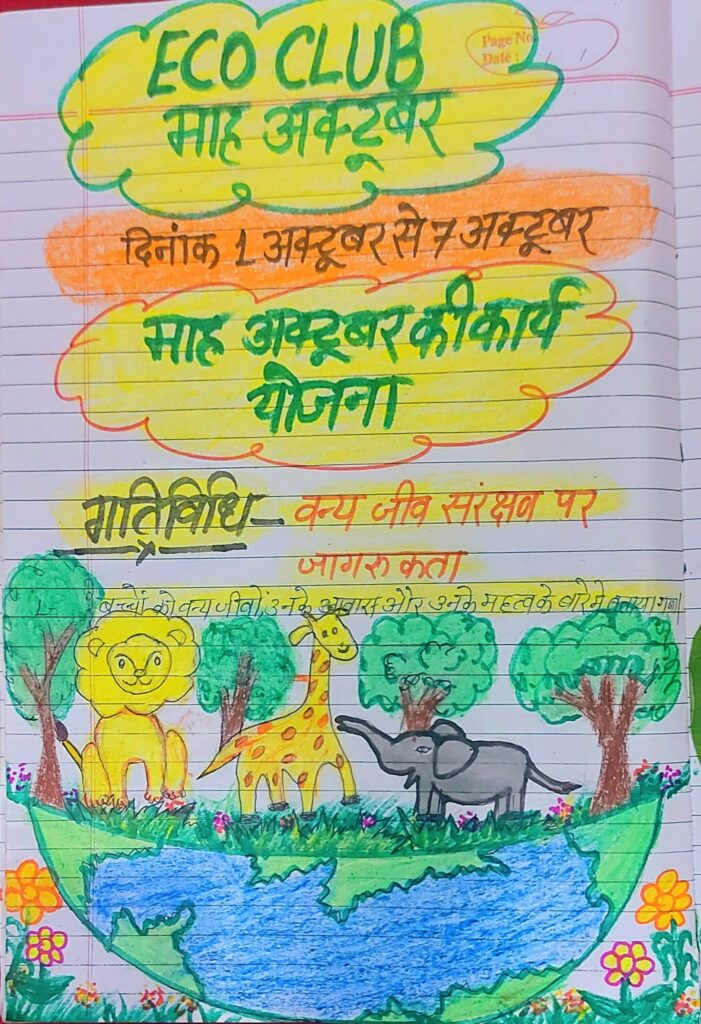 ECO CLUB
Page No.
Date :
माह अक्टूबर
दिनांक 1 अक्टूबर से 7 अक्टूबर
माह अक्टूबर की कार्य
योजना
गतिविधि - वन्य जीव सरंक्षण पर
जागरुकता
बच्चों को वन्य जीवों, उनके आवास और उनके महत्व के बारे मे बताया गया।